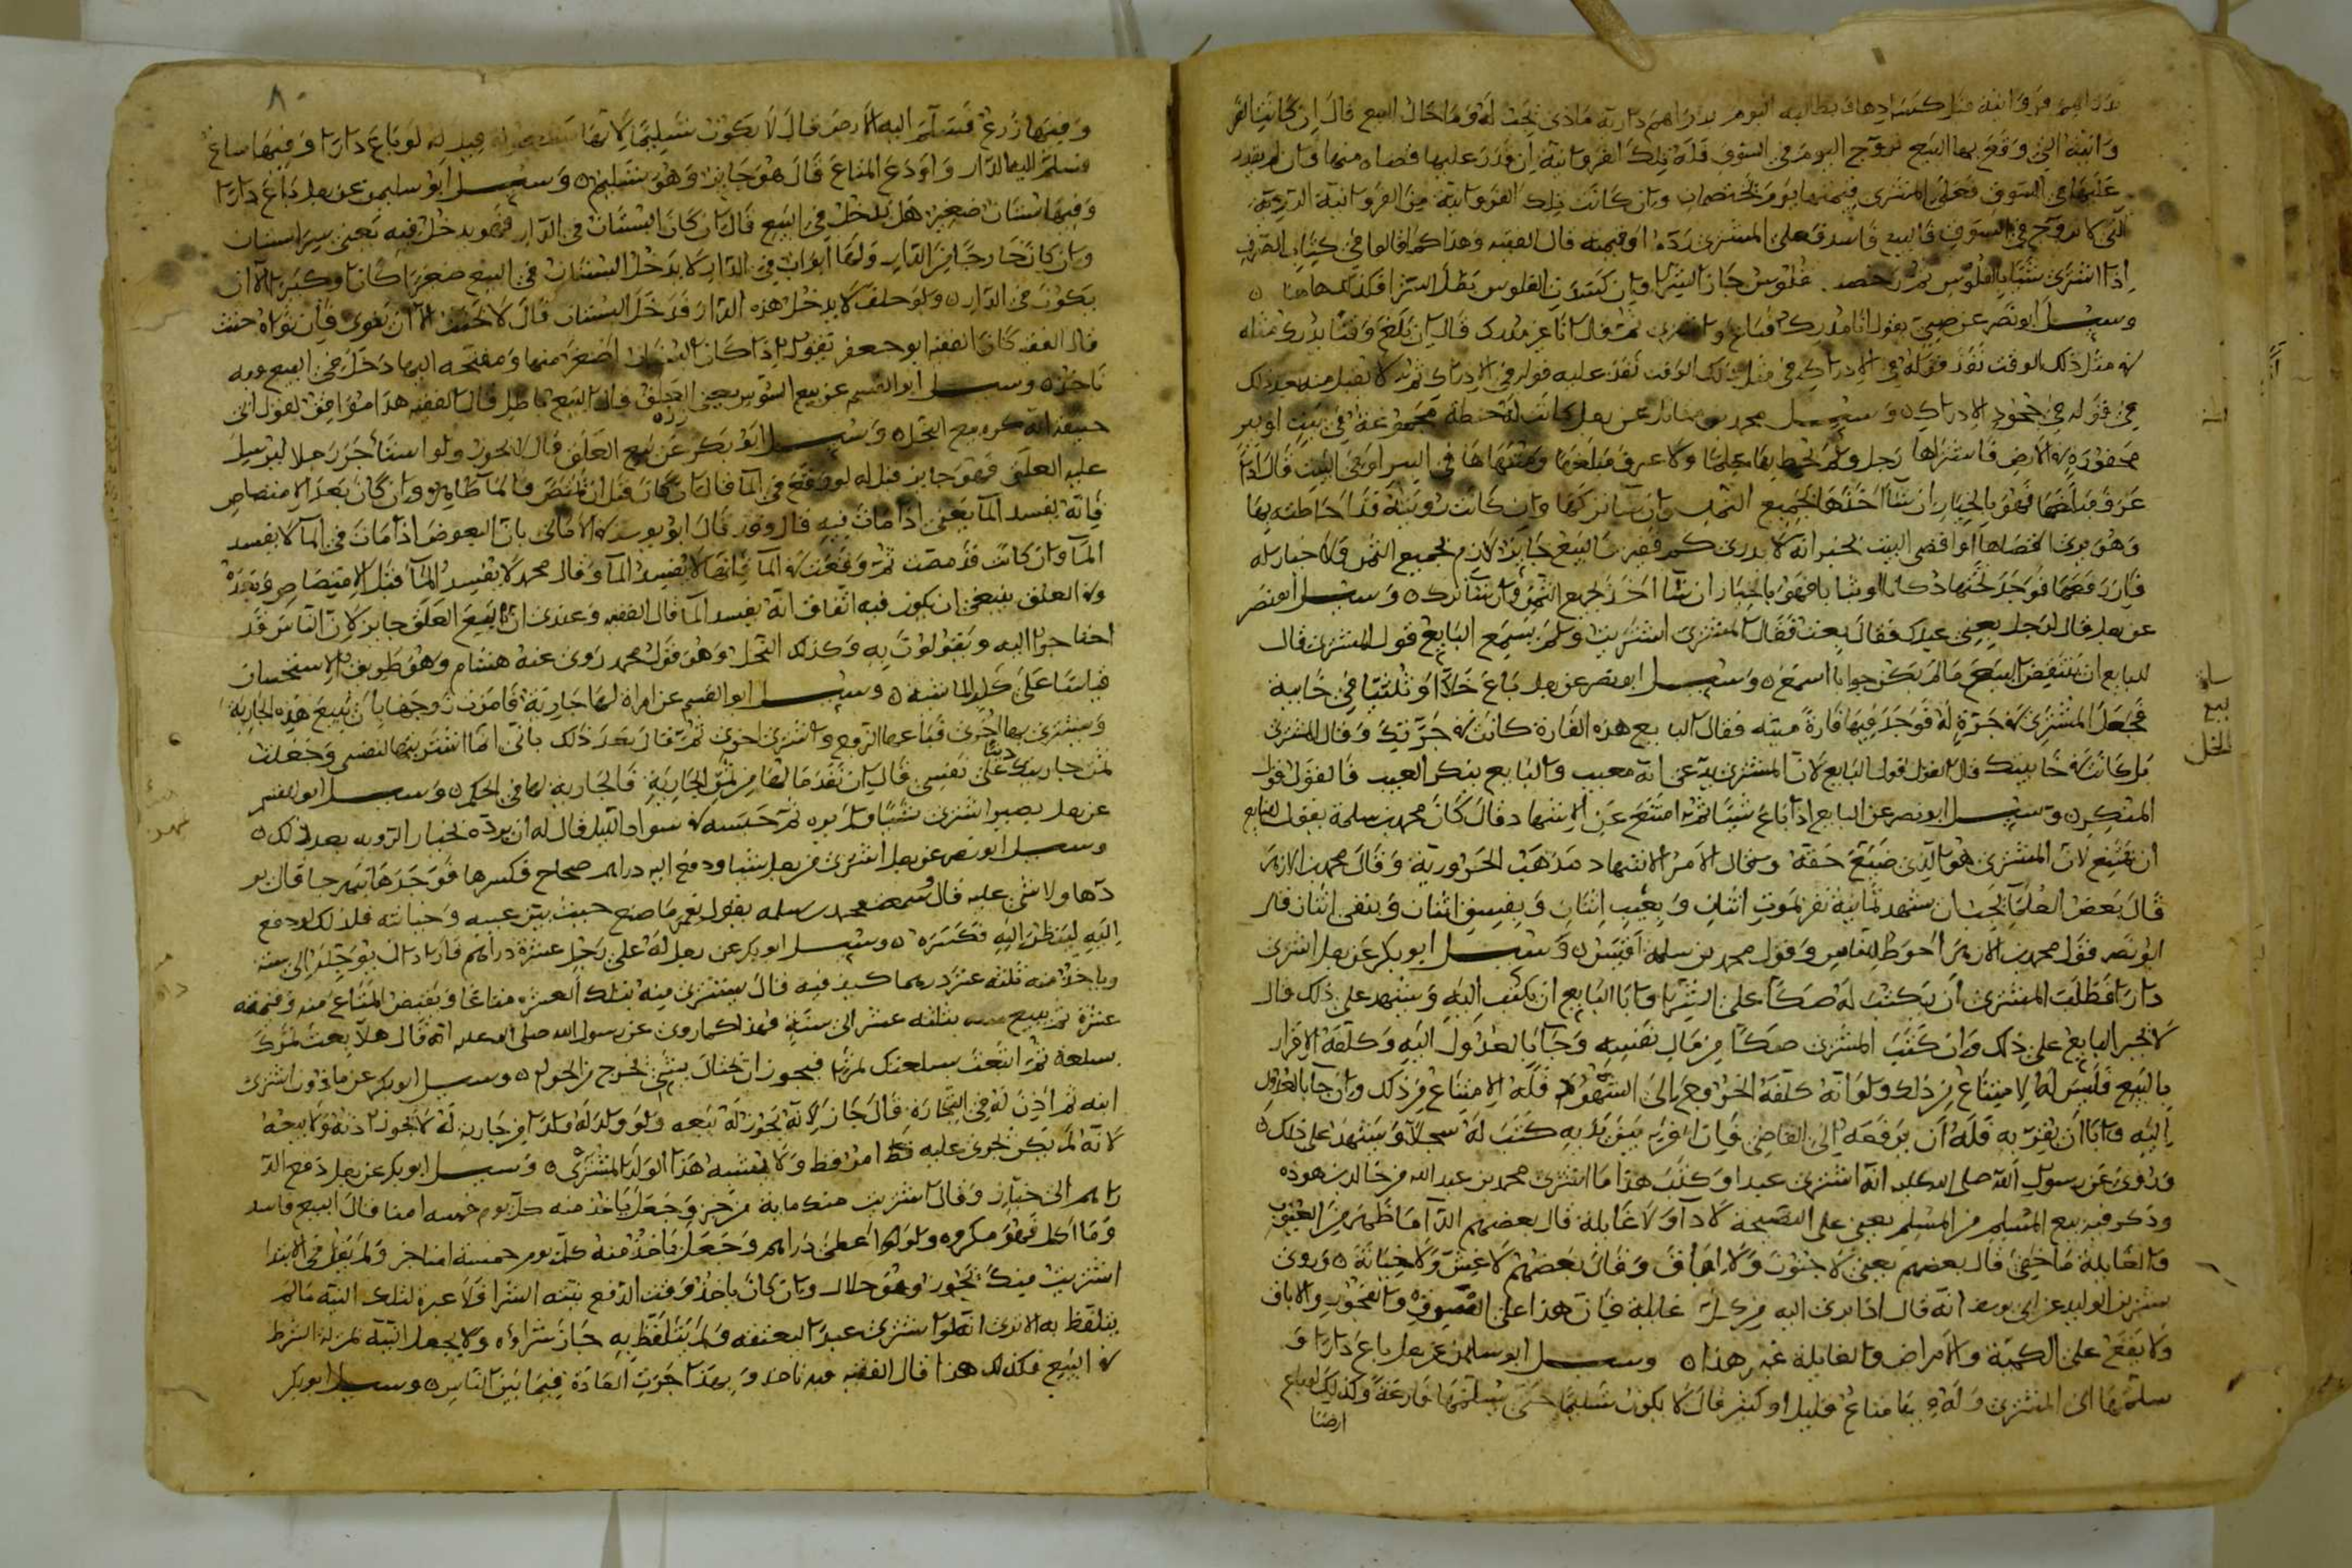 وانية التي وقع بها البيع تروج اليوم في السوق فله تلك الفروانية ان قدر عليها قضاه منها وان لم يقدر
عليها في السوق فعلى المشتري قيمتها يوم يختصمان وان كانت تلك الفروانية من الفروانية الرديئة
التي لا تروج في السوق فالبيع فاسد فعلى المشتري رده او قيمته قال الفقيه وهذا كما قالوا في كتاب الصرف
اذا اشترى شيئا بالفلوس ثم رخصت فلوس جاز الشرا وان كسدت الفلوس بطل الشرا فكذلك هاهنا
وسئل ابو نصر عن صبي يقول انا مدرك فباع واشترى ثم قال انا غير مدرك قال ان بلغ وقتا يدرك مثله
في مثل ذلك الوقت نفذ قوله في الادراك في مثل ذلك الوقت نفذ عليه قوله في الادراك ثم لا يقبل منه بعد ذلك
في قوله في جحود الادراك وسئل محمد بن مقاتل عن رجل كانت له حنطة مجموعة في بيت او بير
محفورة في الارض فاشتراها رجل ولم يحط بها علما ولا عرف مبلغها ومنتهاها في البير او في البيت قال اذا
عرف مبلغها فهو بالخيار ان شا اخذها بجميع الثمن وان شا تركها وان كانت رويته قد احاطت بها
وهو يرى اقصاها او اقصى البيت بخير انه لا يدري كم قفيز فالبيع جايز لازم بجميع الثمن ولا خيار له
فان رفعها فوجد تحتها دكانا او شيا با فهو بالخيار ان شا اخذ بجميع الثمن وان شا ترك وسئل ابو نصر
عن رجل قال لرجل بعني عبدك فقال بعت فقال المشتري اشتريت ولم يسمع البايع قول المشتري قال
للبايع ان ينقض البيع ما لم يكن جوابا اسمع وسئل ابو نصر عن رجل باع خلا او ثلثيا في خابية
فجعل المشتري في جرة له فوجد فيها فارة ميتة فقال البايع هذه الفارة كانت في جرتك وقال المشتري
بل كانت في خابيتك قال القول قول البايع لان المشتري يدعي انه معيب والبايع ينكر العيب فالقول قول
المنكر وسئل ابو نصر عن البايع اذا باع شيئا ثم امتنع عن الاشهاد قال كان محمد بن سلمة يقول للبايع
ان يمتنع لان المشتري هو الذي ضيع حقه وسخال الامر الاشهاد مذهب الحرورية وقال محمد بن الازهر
قال بعض العلما يجب ان يشهد ثمانية نفر يموت اثنان ويغيب اثنان ويفسق اثنان ويبقى اثنان قال
ابو نصر قول محمد بن الازهر احوط للناس وقول محمد بن سلمة اقيس وسئل ابو بكر عن رجل اشترى
دارا فطلب المشتري ان يكتب له صكا على الشرا وابا البايع ان يكتب اليه ويشهد على ذلك قال
لا يجبر البايع على ذلك وان كتب المشتري صكا من مال نفسه وجا بالعدول اليه وكلفه الاقرار
بالبيع فليس له الامتناع من ذلك ولو انه كلفه الخروج الى الشهود فله الامتناع من ذلك وان جا بالعدول
اليه وابا ان يقر به فله ان يرفعه الى القاضي فان اقر بين يديه كتب له سجلا ويشهد على ذلك
وروي عن رسول الله صلى الله عليه انه اشترى عبدا وكتب هذا ما اشترى محمد بن عبد الله من خالد بن هوذه
وذكر فيه بيع المسلم من المسلم يعني على النصيحة لا دآ ولا غايلة قال بعضهم الدآ ما ظهر من العيوب
والغايلة ما خفي قال بعضهم يعني لا جنون ولا اباق وقال بعضهم لا غش ولا خيانة وروى
بشر بن الوليد عن ابي يوسف انه قال اذا برئ اليه من كل غايلة فان هذا على السرقة والفجور والاباق
ولا يقع على الكية والامراض والغايلة غير هذا وسئل ابو سليمان عن رجل باع دارا و
سلمها الى المشتري وله بها متاع قليل او كثير قال لا يكون تسليما حتى يسلمها فارغة وكذلك لو باع
ارضا
مسئلة
بيع
الخل
٨٠
وفيها زرع فسلم اليه الارض قال لا يكون تسليما لانها قيل له لو باع دارا وفيها متاع
فسلم اليه الدار واودع المتاع قال هو جايز وهو تسليم وسئل ابو سليمن عن رجل باع دارا
وفيها بستان صغير هل يدخل في البيع قال ان كان البستان في الدار فهو يدخل فيه يعني بستان
وان كان خارجا من الدار ولها ابواب في الدار لا يدخل البستان في البيع صغيرا كان او كبيرا الا ان
يكون في الدار ولو حلف لا يدخل هذه الدار فدخل البستان قال لا يحنث الا ان نوى فان نواه حنث
قال الفقيه كان الفقيه ابو جعفر يقول اذا كان البستان اصغر منها ومفتحه اليها دخل في البيع وبه
ناخذ وسئل ابو القسم عن بيع السوس يعني العلق قال البيع باطل قال الفقيه هذا موافق لقول ابي
حنيفة انه كره بيع النحل وسئل ابو بكر عن بيع العلق قال لا يجوز ولو استاجر رجلا ليرسل
عليه العلق فهو جايز قيل له لو وقع في الما قال ان كان قبل ان يمتص فالما طاهر وان كان بعد الامتصاص
فانه يفسد الما يعني اذا مات فيه قال وقد قال ابو يوسف في الامالي بان البعوض اذا مات في الما لا يفسد
الما وان كانت قد مصت ثم وقعت في الما فانها لا تفسد الما وقال محمد لا يفسد الما قبل الامتصاص وبعده
وفي العلق ينبغي ان يكون فيه اتفاق انه يفسد الما قال الفقيه وعندي ان بيع العلق جايز لان الناس قد
احتاجوا اليه ويتمولون به وكذلك النحل وهو قول محمد روى عنه هشام وهو طريق الاستحسان
قياسا على كلب الماشية وسئل ابو القسم عن امراة لها جارية فامرت زوجها بان يبيع هذه الجارية
ويشتري بها اخرى فباعها الزوج واشترى اخرى ثم قال بعد ذلك باني انا اشتريتها لنفسي وجعلت
ثمن جاريتك دينا على نفسي قال ان نقد مالها من ثمن الجارية فالجارية لها في الحكم وسئل ابو القسم
عن رجل بصير اشترى شيئا ولم يره ثم حبسه في سواد الليل قال له ان يرده بخيار الروية بعد ذلك
وسئل ابو نصر عن رجل اشترى من رجل شيئا ودفع اليه دراهم صحاح فكسرها فوجدها نبهرجا قال ير
دها ولا شي عليه قال وسمعت محمد بن سلمه يقول نعم ما صنع حيث بين عيبه وخيانته فلذلك لو دفع
اليه لينظر اليه فكسره وسئل ابو بكر عن رجل له على رجل عشرة دراهم فاراد ان يوجله الى سنة
وياخذ منه ثلثة عشر درهما كيف فيه قال يشتري منه بتلك العشرة متاعا ويقبض المتاع منه وقيمته
عشرة ثم يبيع منه بثلثه عشر الى سنة فهذا كما روى عن رسول الله صلى الله عليه انه قال هلا بعت تمرك
بسلعة ثم ابتعت بسلعتك تمرا فيجوز ان تحتال بشي تخرج من الحرام وسئل ابو بكر عن ماذون اشترى
ابنه ثم اذن له في التجارة قال جاز لانه يجوز له بيعه ولو ولد له ولد من جارية له لا يجوز اذنه ولا بيعه
لانه لم يكن يجرى عليه امر قط ولا يشبه هذا الولد المشتري وسئل ابو بكر عن رجل دفع الد
راهم الى خباز وقال اشتريت منك مايه من خبز وجعل ياخذ منه كل يوم خمسه امنا قال البيع فاسد
وما اكل فهو مكروه ولو اعطى دراهم وجعل ياخذ منه كل يوم خمسة امنا خبز ولم يقل في الابتدا
اشتريت منك يجوز وهو حلال وان كان ياخذ وقت الدفع بنية الشرا فلا عبرة لتلك النية ما لم
يتلفظ به الا ترى انه لو اشترى عبدا ليعتقه ولم يتلفظ به جاز شراوه ولا يجعل النية بمنزلة الشرط
في البيع فكذلك هذا قال الفقيه وبه ناخذ وبهذا جرت العادة فيما بين الناس وسئل ابو بكر